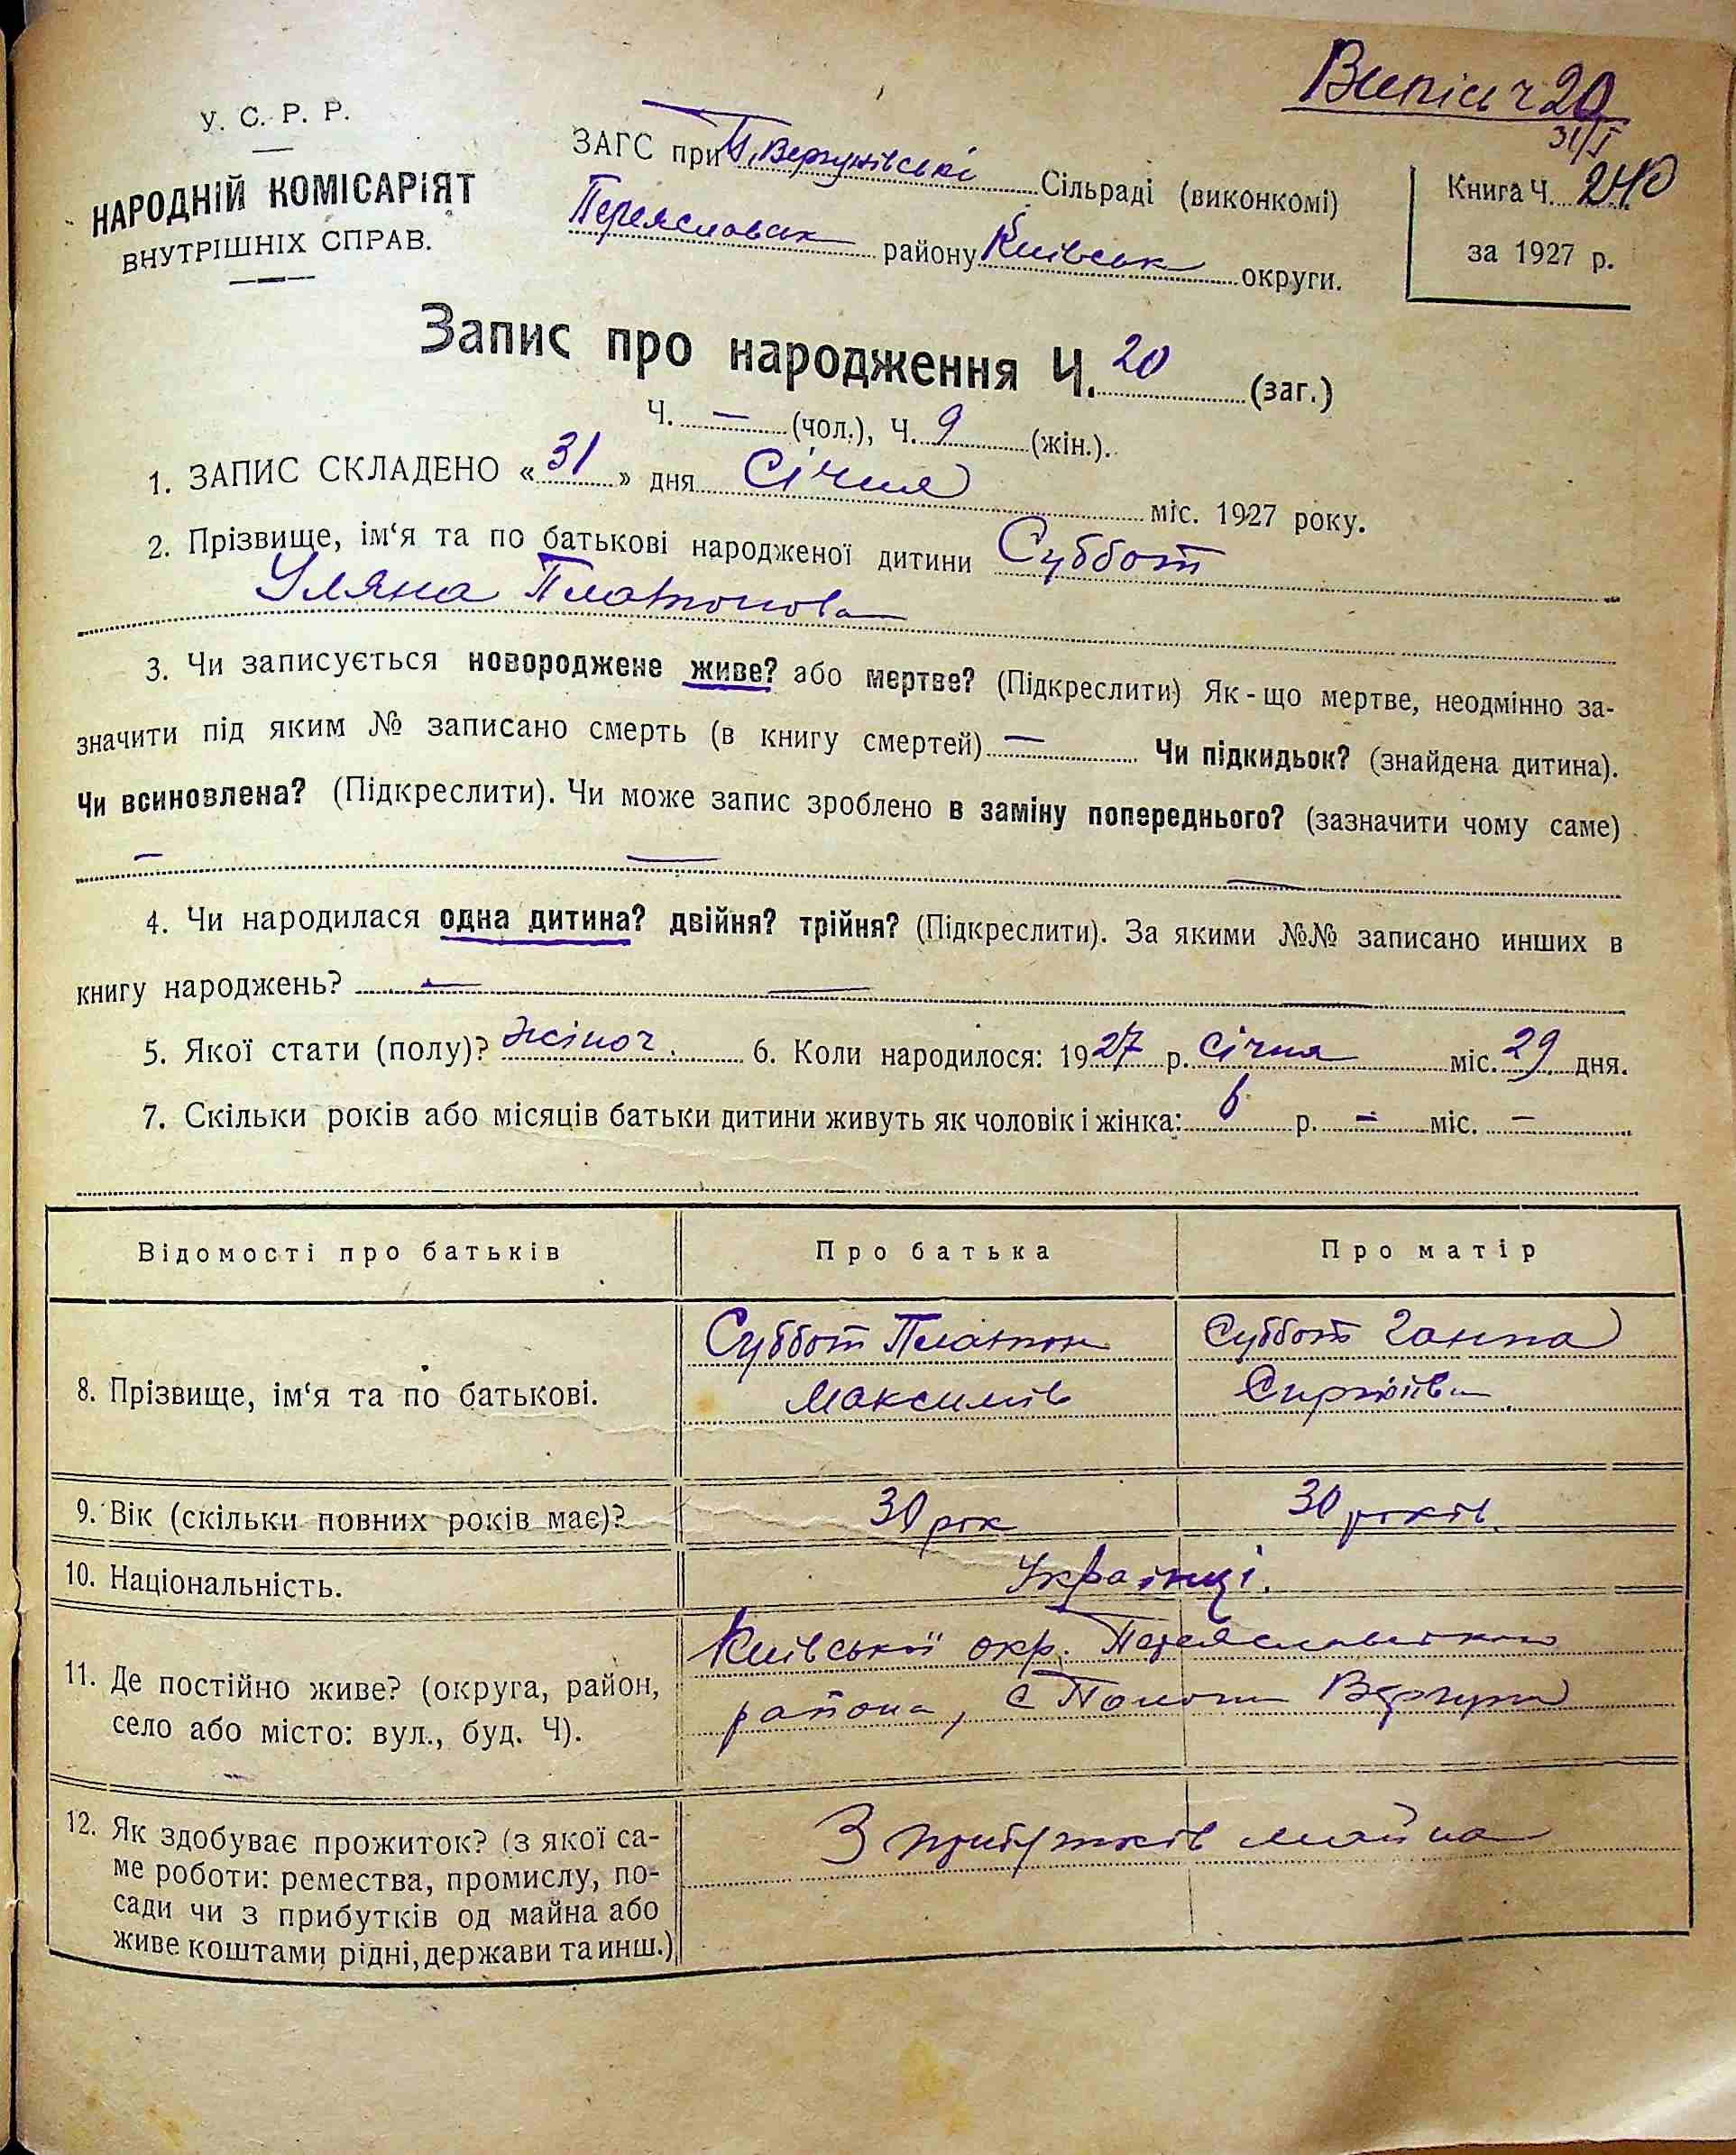 Випись ч 20
31/I
У. С. Р. Р.
НАРОДНІЙ КОМІСАРІЯТ
ВНУТРІШНІХ СПРАВ.
ЗАГС при П. Вергунівські Сільраді (виконкомі)
Переяславськ району Київськ округи.
Книга Ч. 240
за 1927 р.
Запис про народження Ч. 20 (заг.)
Ч. — (чол.), Ч. 9 (жін.).
1. ЗАПИС СКЛАДЕНО «31» дня Січня міс. 1927 року.
2. Прізвище, ім‘я та по батькові народженої дитини Суббот
Уляна Платонова
3. Чи записується новороджене живе? або мертве? (Підкреслити) Як-що мертве, неодмінно за-
значити під яким № записано смерть (в книгу смертей) — Чи підкидьок? (знайдена дитина).
Чи всиновлена? (Підкреслити). Чи може запис зроблено в заміну попереднього? (зазначити чому саме)
— — —
4. Чи народилася одна дитина? двійня? трійня? (Підкреслити). За якими №№ записано инших в
книгу народжень? — — —
5. Якої стати (полу)? жіноч. 6. Коли народилося: 1927 р. Січня міс. 29 дня.
7. Скільки років або місяців батьки дитини живуть як чоловік і жінка: 6 р. — міс. —
Відомості про батьків Про батька Про матір
8. Прізвище, ім‘я та по батькові.
Суббот Платон
Максимів
Суббот Ганна
Сергіївн
9. Вік (скільки повних років має)? 30 рок 30 років
10. Національність. Українці.
11. Де постійно живе? (округа, район,
село або місто: вул., буд. Ч).
Київської окр. Переяславського
района, с Полого Вергуни
12. Як здобуває прожиток? (з якої са-
ме роботи: ремества, промислу, по-
сади чи з прибутків од майна або
живе коштами рідні, держави та инш.)
З прибутків майна